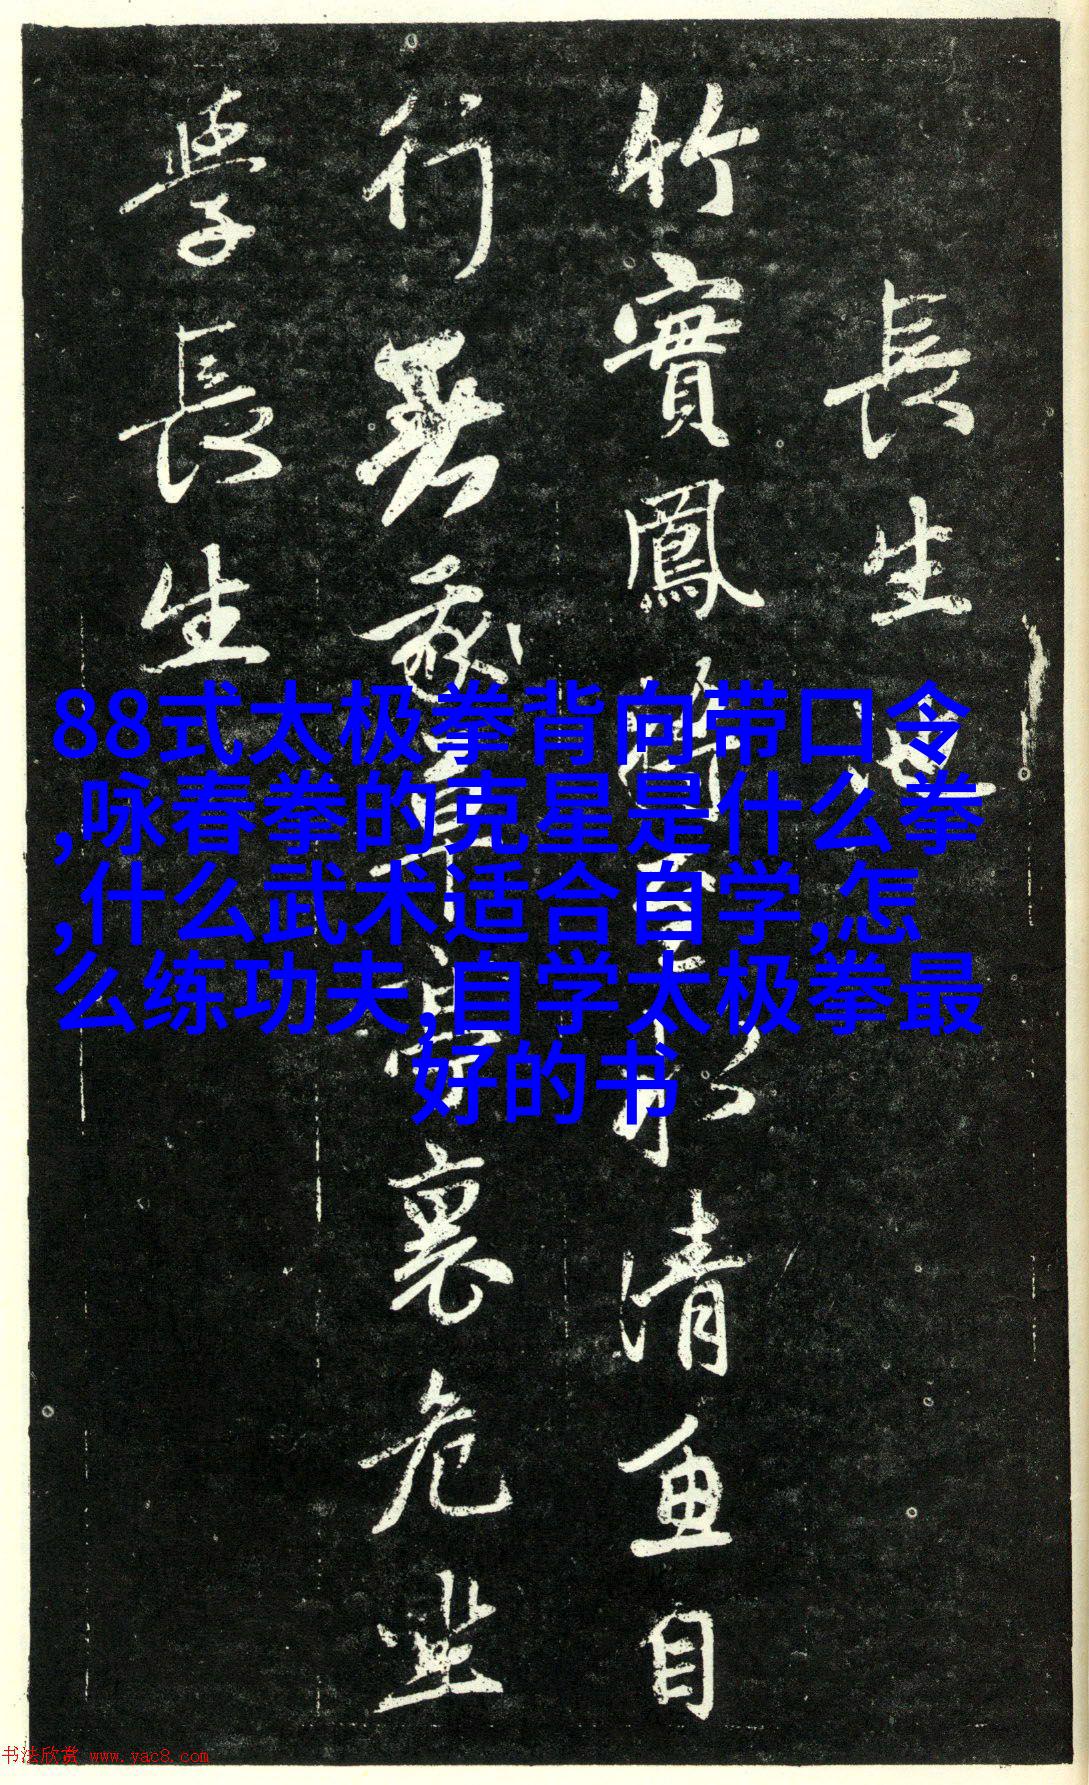 長生池
竹實鳳將至水清魚自
行裏危坐
學長生
88式太极拳背向带口令
,咏春拳的克星是什么拳
,什么武术适合自学,怎
么练功夫,自学太极拳最
好的书
书法欣赏 www.yac8.com